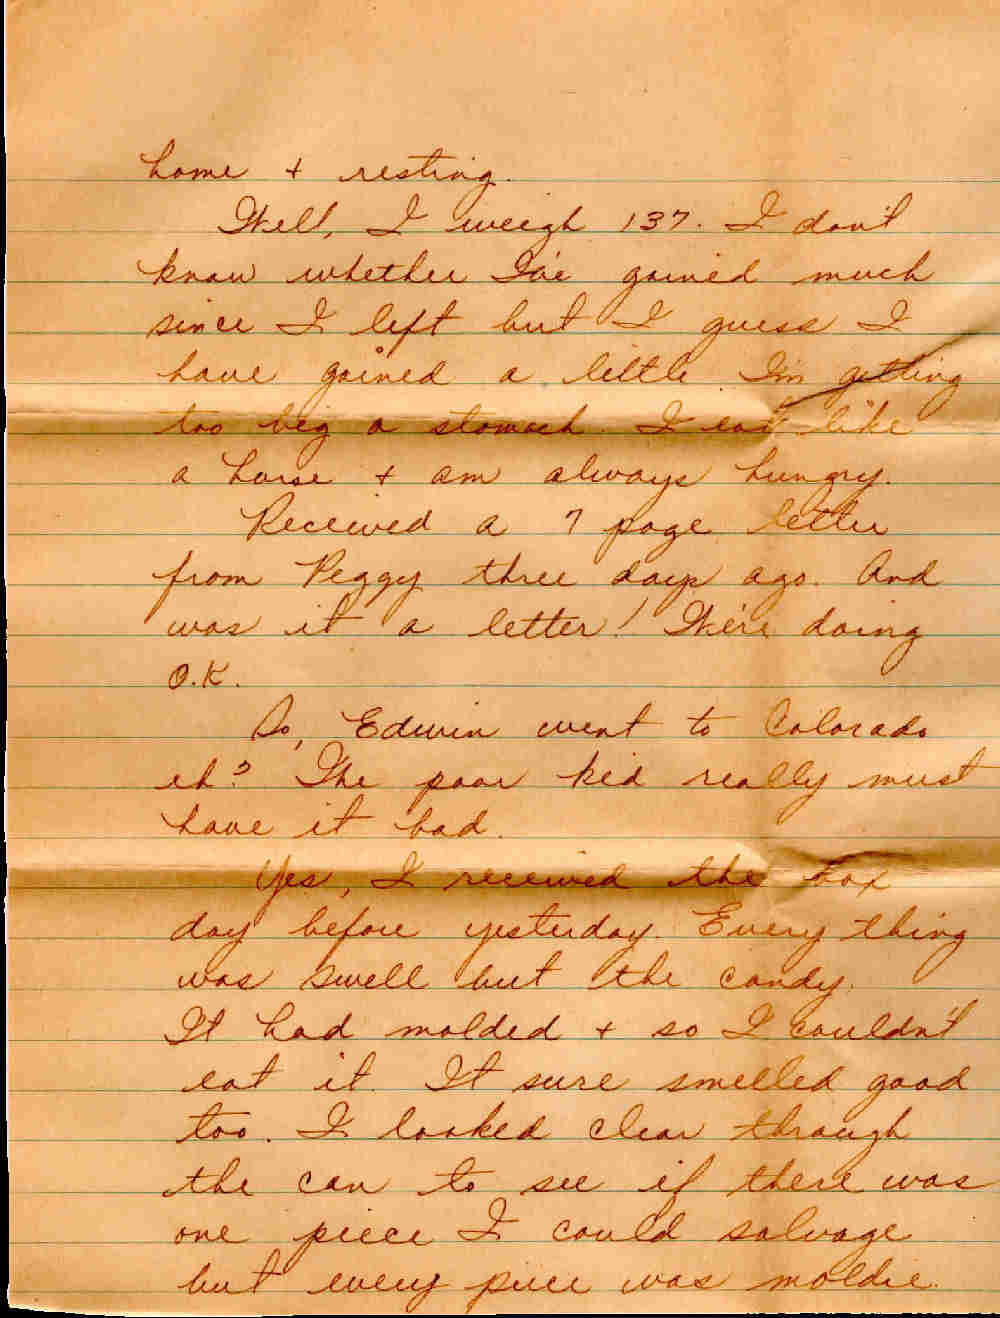 home + resting.
Well, I weigh 137. I don't
know whether I've gained much
since I left but I guess I
have gained a little. I'm getting
too big a stomach. I eat like
a horse + am always hungry.
Received a 7 page letter
from Peggy three days ago. And
was it a letter! We're doing
O.K.
So, Edwin went to Colorado
eh? The poor kid really must
have it bad.
Yes, I received the box
day before yesterday. Every thing
was swell but the candy.
It had molded + so I couldn't
eat it. It sure smelled good
too. I looked clear through
the can to see if there was
one piece I could salvage
but every piece was moldie.